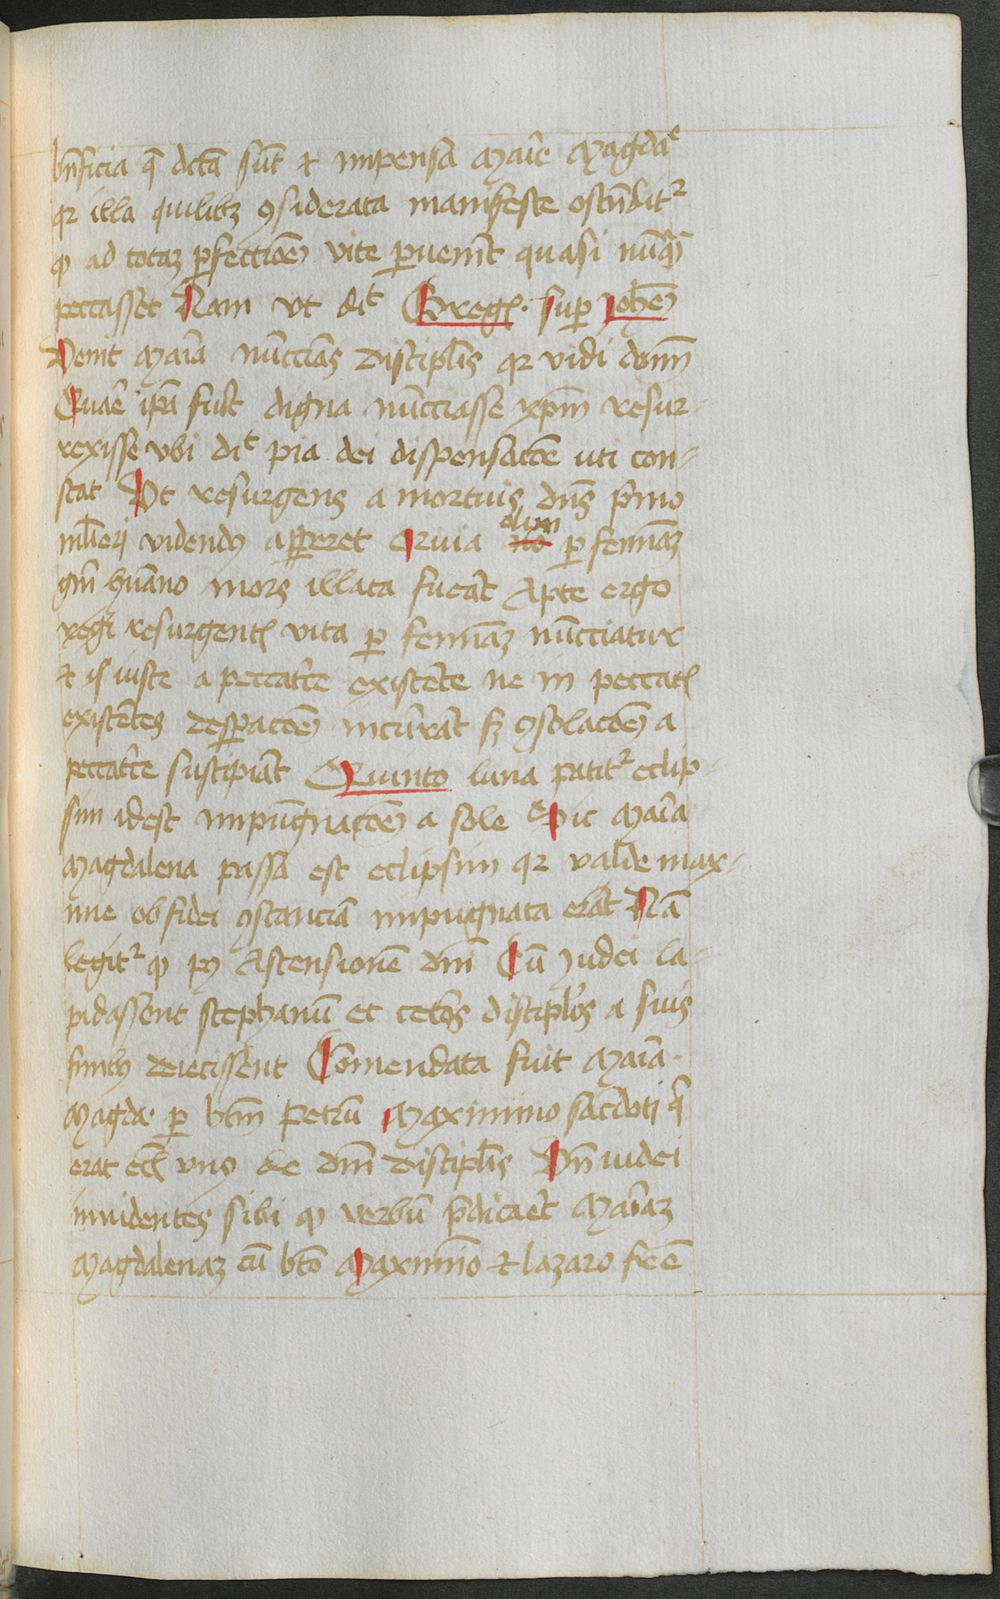 bn̄ficia q̄ dc̄ta sūt et impensa Mar̄ie Magdaᵉ
qr illa quilibꝫ ꝯsiderata manifeste ostn̄dit᷑
ꝙ ad totaꝫ ꝑfectiōeꝫ vite ꝑuen̄it quasi nūqᷓꝫ
peccasset Nam vt dit Greg̅ · suꝑ Joh̄em
Venit Mar̄ia nūccians discipl̄is qr vidi dom̄
Quar̄e ip̄a fuit digna nūcciasse xp̄m resur-
rexisse vbi dit pia dei dispensac̄ōe uti con-
stat Vt resurgens a mortuis dn̄s p̄mo
mul̄ieri videndꝰ apꝑeret Quia olim ꝑ feminaꝫ
gn̄i hūano mors illata fuerāt Apte ergo
resurgentꝭ vita ꝑ feminaꝫ nūcciatur
et iuste a peccatr̄ce existēte ne in peccatꝭ
existētes desꝑac̄ōeꝫ incurrāt sꝫ ꝯsolac̄ōeꝫ a
peccatr̄ce suscipiāt Quinto luna patit᷑ eclip-
sim idest impūgnac̄ōeꝫ a sole Sic Mar̄ia
Magdalena passa est eclipsim qr valde max-
ime ob fidei ꝯstanciā impugnata erāt Nā
legit᷑ ꝙ pꝰ Ascensionē dn̄i Cū Judei la-
pidassent stephanū et cet̄os discipl̄os a suis
finibꝰ deiecissent Comendata fuit Mar̄ia
Magda· ꝑ btm̄ Petrū Maximino sac̄doti q̄
erat ec̄ vnꝰ de dn̄i discipl̄is Vn̄ iudei
inuidentes sibi ꝙ verbū p̄dicar̄et Mar̄iaꝫ
Magdalenaꝫ cū bt̄o Maximīo et lazaro fr̄e